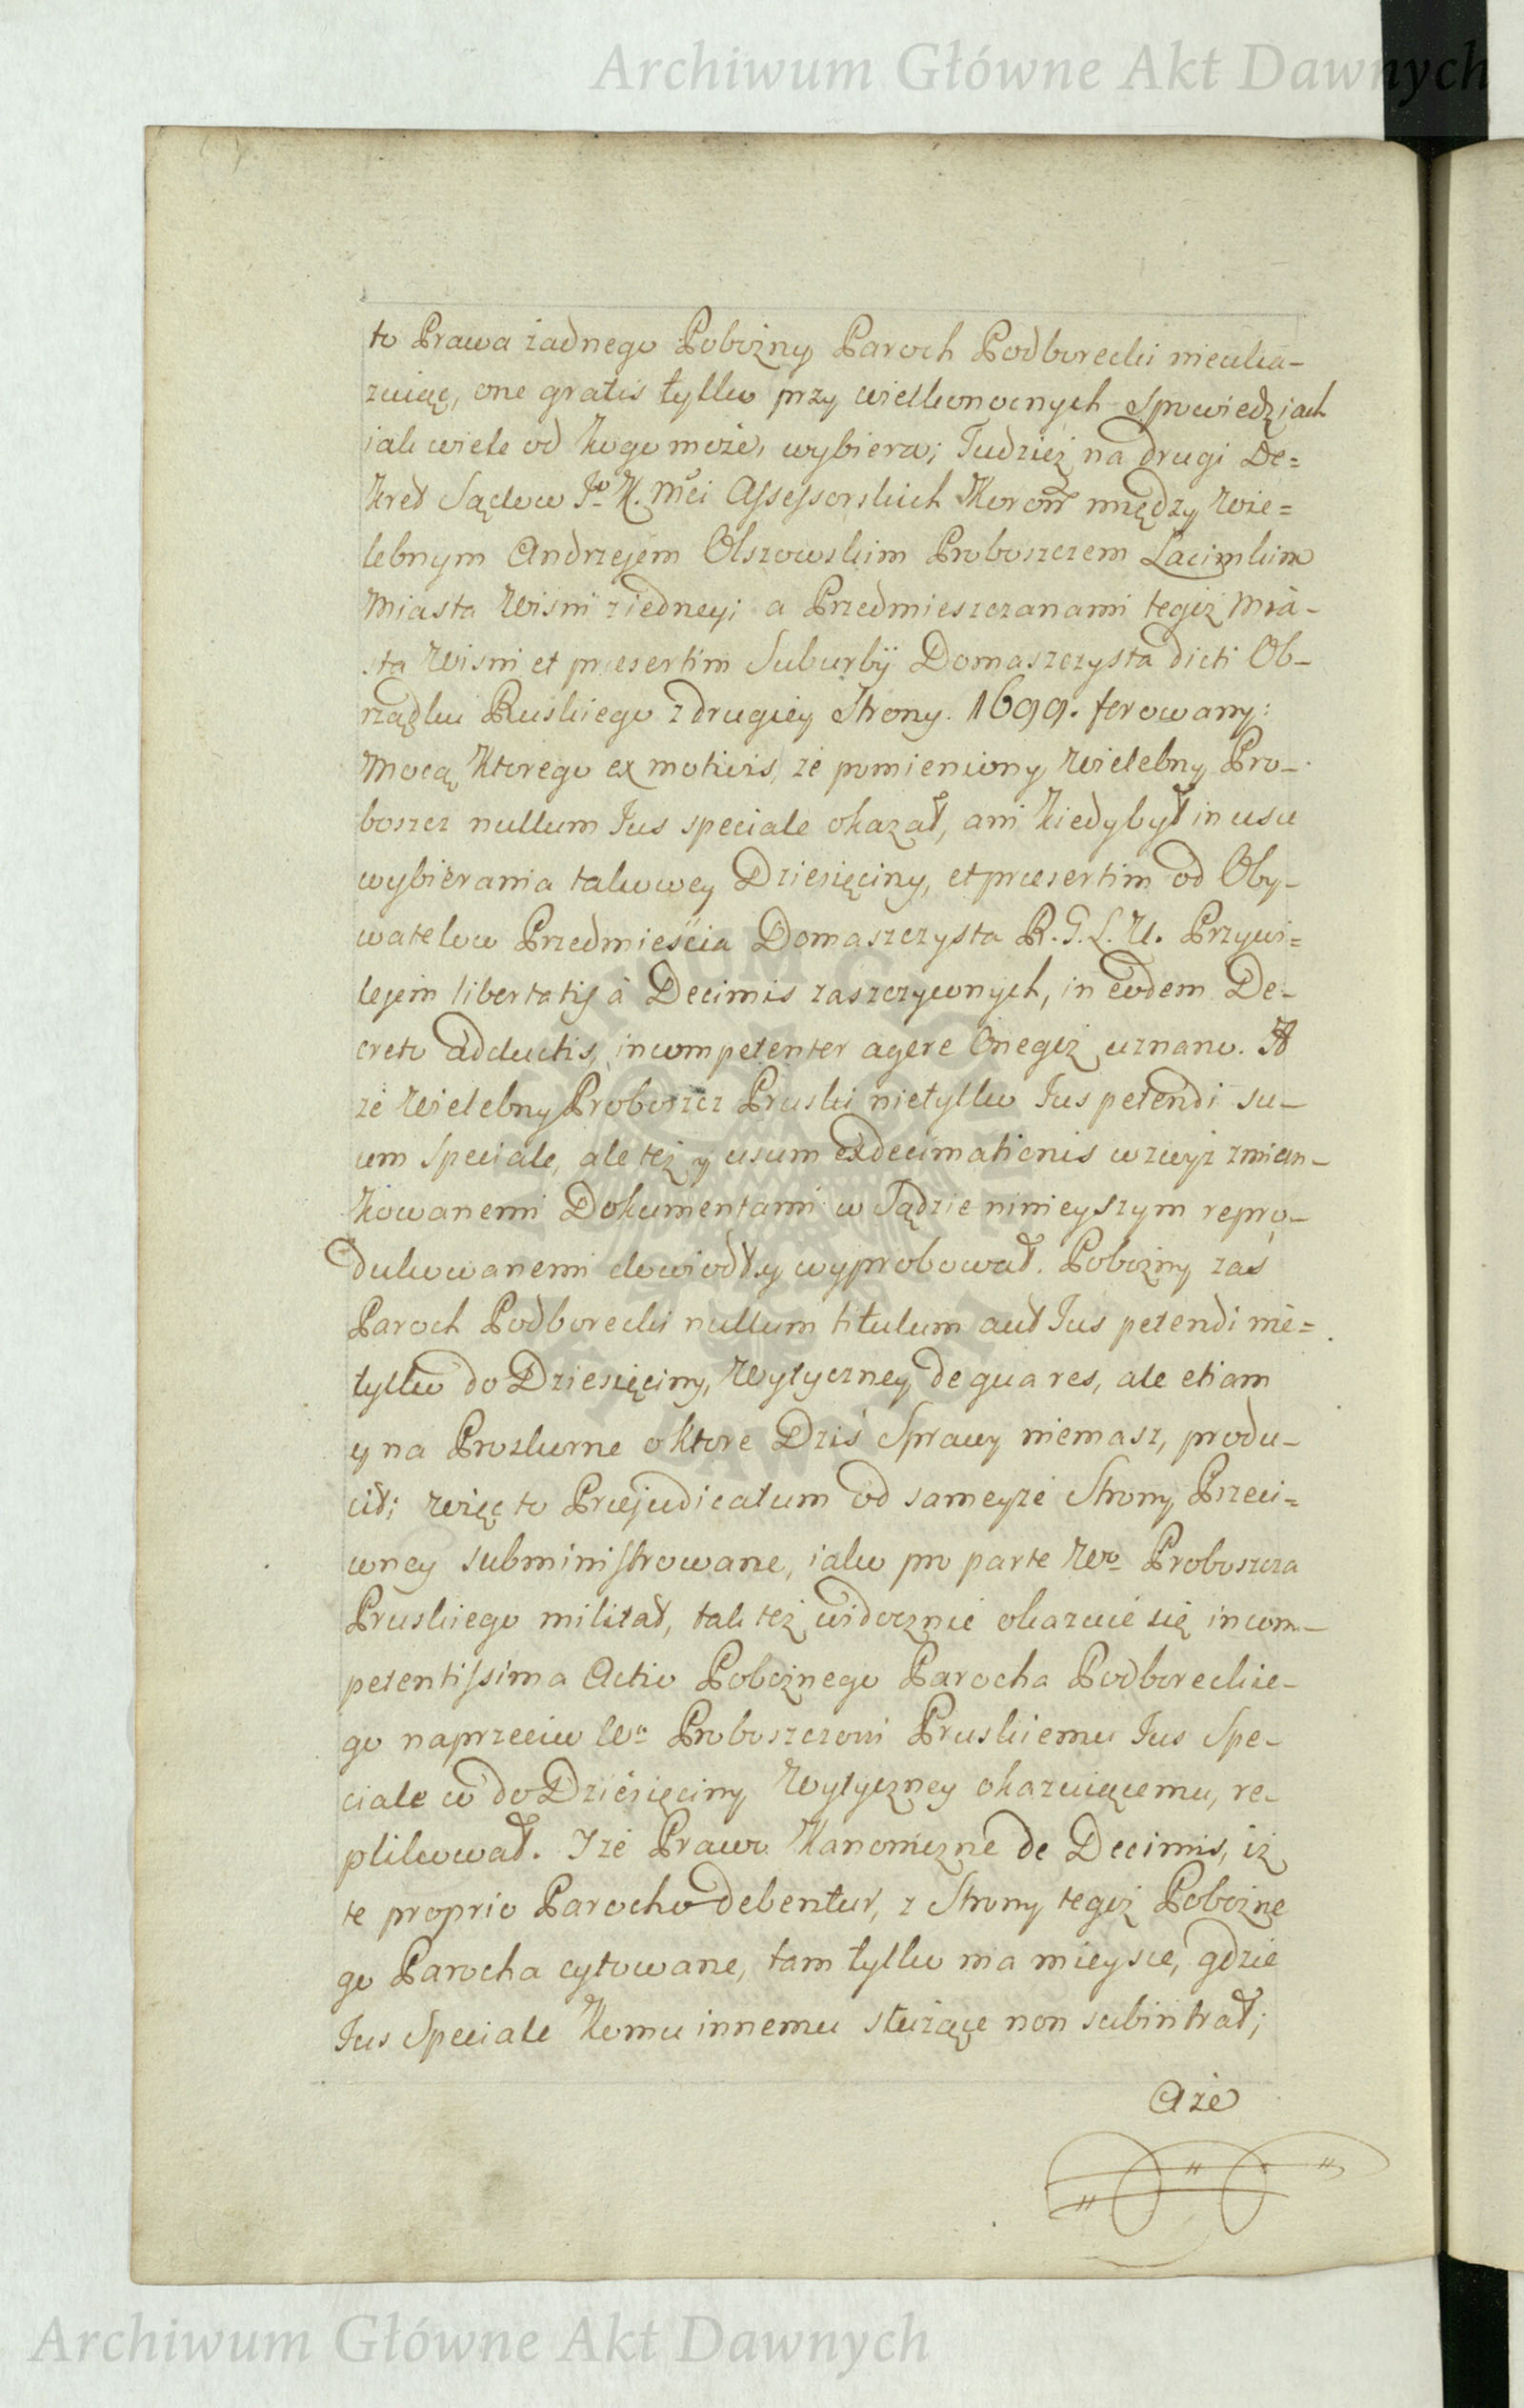 Archiwum Główne Akt Dawnych
to Prawa żadnego Pobożny Paroch Podborecki nieuka-
zuiąc, one gratis tylko przy wielkonocnych Spowiedziach
iak wiele od kogo może, wybiera; Tudzież na drugi De=
kret Sądow Jo K. Mci Assessorskich Koron między Wie=
lebnym Andrzejem Olszowskim Proboszczem Łacinskim
Miasta Wisni z iedney; a Przedmieszczanami tegoż Mia-
sta Wisni et præsertim Suburbÿ Domaszczysta dicti Ob-
rządku Ruskiego z drugiey Strony. 1699. ferowany:
Mocą ktorego ex motivis, że pomieniony Wielebny Pro-
boszcz nullum Jus speciale okazał, ani kiedy był in usu
wybierania takowey Dziesięciny, et præsertim od Oby-
watelow Przedmieścia Domaszczysta R. G. L. U. Przywi=
lejem libertatis à Decimis zaszczyconych, in eodem De-
creto adductis, incompetenter agere Onegoż uznano. A
że Wielebny Proboszcz Pruski nietylko Jus petendi su-
um Speciale, ale też y usum exdecimationis wzwyż zmian-
kowanemi Dokumentami w Sądzie ninieyszym repro-
dukowanemi dowiodł y wyprobował. Pobożny zaś
Paroch Podborecki nullum titulum aut Jus petendi nie=
tylko do Dziesięciny, Wytyczney de qua res, ale etiam
y na Proskurne o ktore Dziś Sprawy niemasz, produ-
cit; więc to Præjudicatum od sameyże Strony Przeci=
wney subministrowane, iako pro parte Wo Proboszcza
Pruskiego militat, tak też widocznie okazuie się incom-
petentissima Actio Pobożnego Parocha Podboreckie-
go naprzeciw Wu Proboszczowi Pruskiemu Jus Spe-
ciale w do Dziesięciny Wytyczney okazuiącemu, re-
plikował. I że Prawo Kanoniczne de Decimis, iż
te proprio Parocho debentur, z Strony tegoż Pobożne
go Parocha cytowane, tam tylko ma mieysce, gdzie
Jus Speciale komu innemu służące non subintrat;
Aże
Archiwum Główne Akt Dawnych